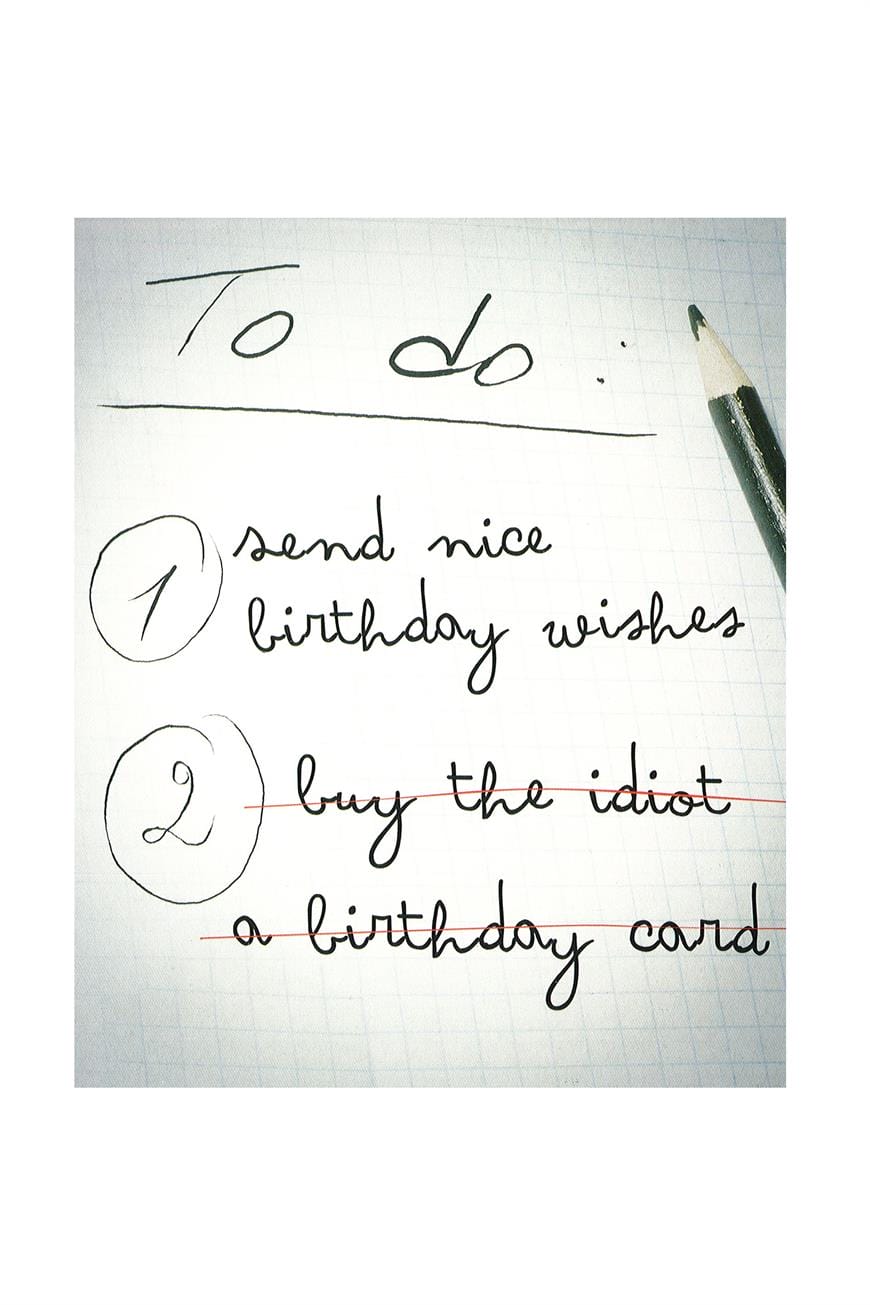 To do :
1 send nice
birthday wishes
2 buy the idiot
a birthday card